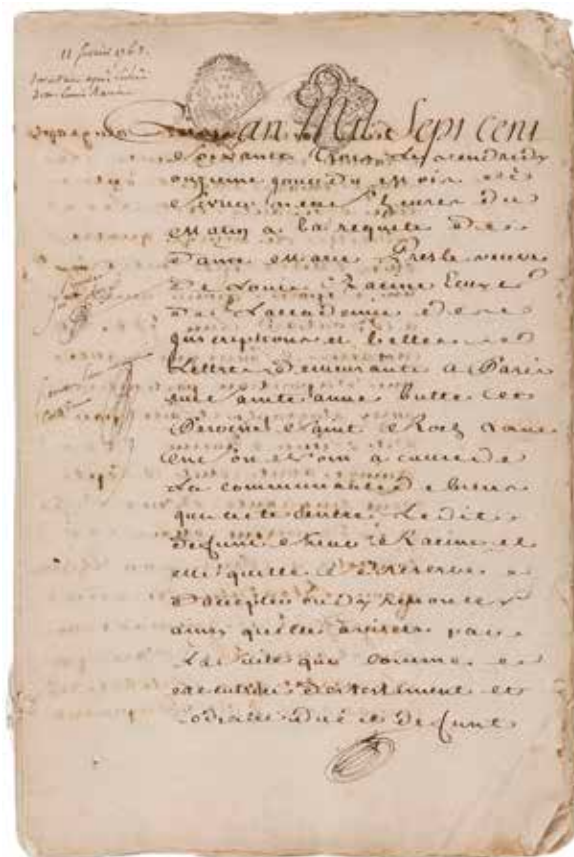 11 février 1763.
inventaire après décès
de Louis Racine
L'an Mil Sept Cent
Soixante Trois Le vendredy
onzieme jour du mois de
fevrier neuf heures du
Matin a la requete de
Dame Marie Presle veuve
de Louis Racine Ecuyer
de L'accademie des
Inscriptions et belles
Lettres demeurante a Paris
rue Sainte anne butte et
Paroisse Saint Roch Tant
en son nom a cause de
La communauté de biens
qui a été Entre Le dit
defunt Sieur Racine et
elle qu'elle se Reserve
d'accepter ou d'y Renoncer
ainsy qu'elle avisera par
La suite que comme
executrice du testament et
codicille dud. defunt